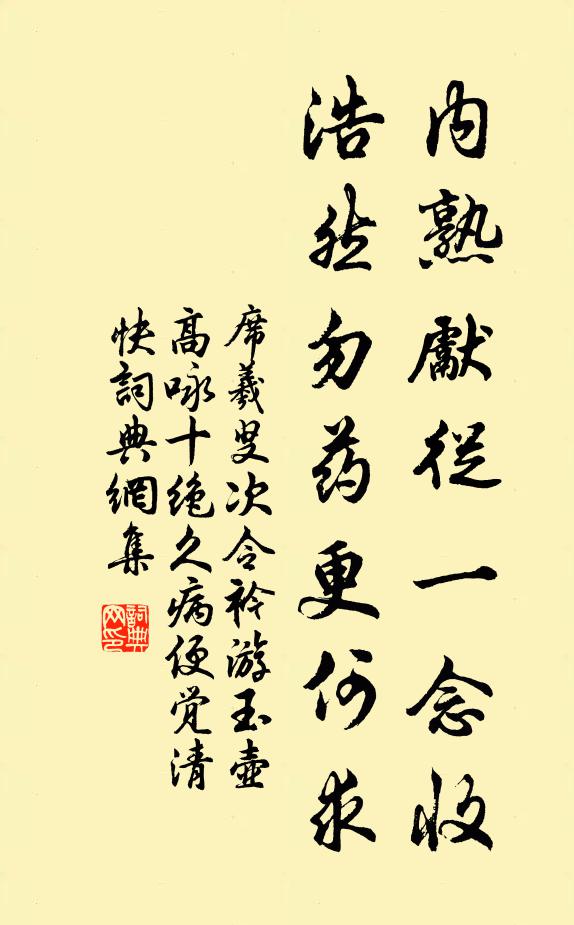 内熟獻從一念收
浩然勿药更何求
席羲叟次合衿游玉壶
高咏十绝久病便觉清
快詞典網集
詞典网印